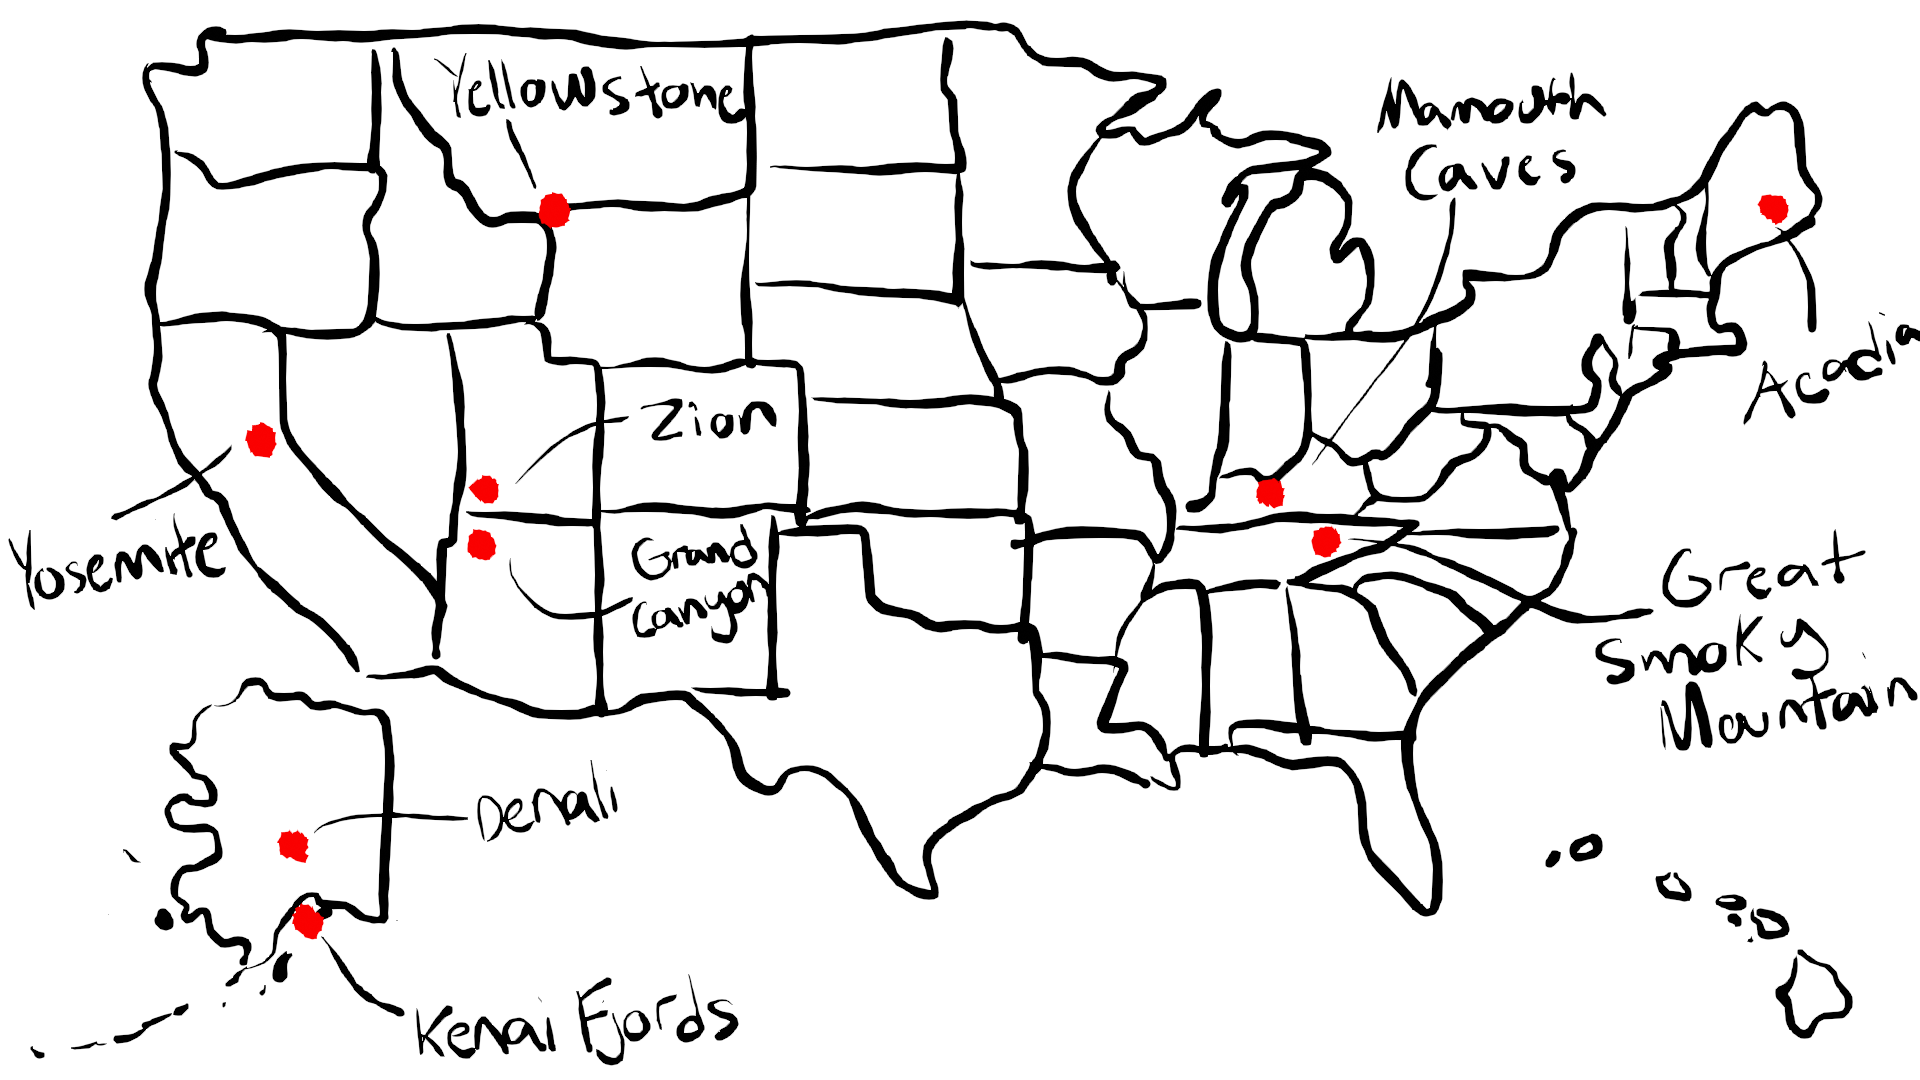 Yellowstone
Mamouth
Caves
Acadia
Zion
Yosemite
Grand
Canyon
Great
Smoky
Mountain
Denali
Kenai Fjords